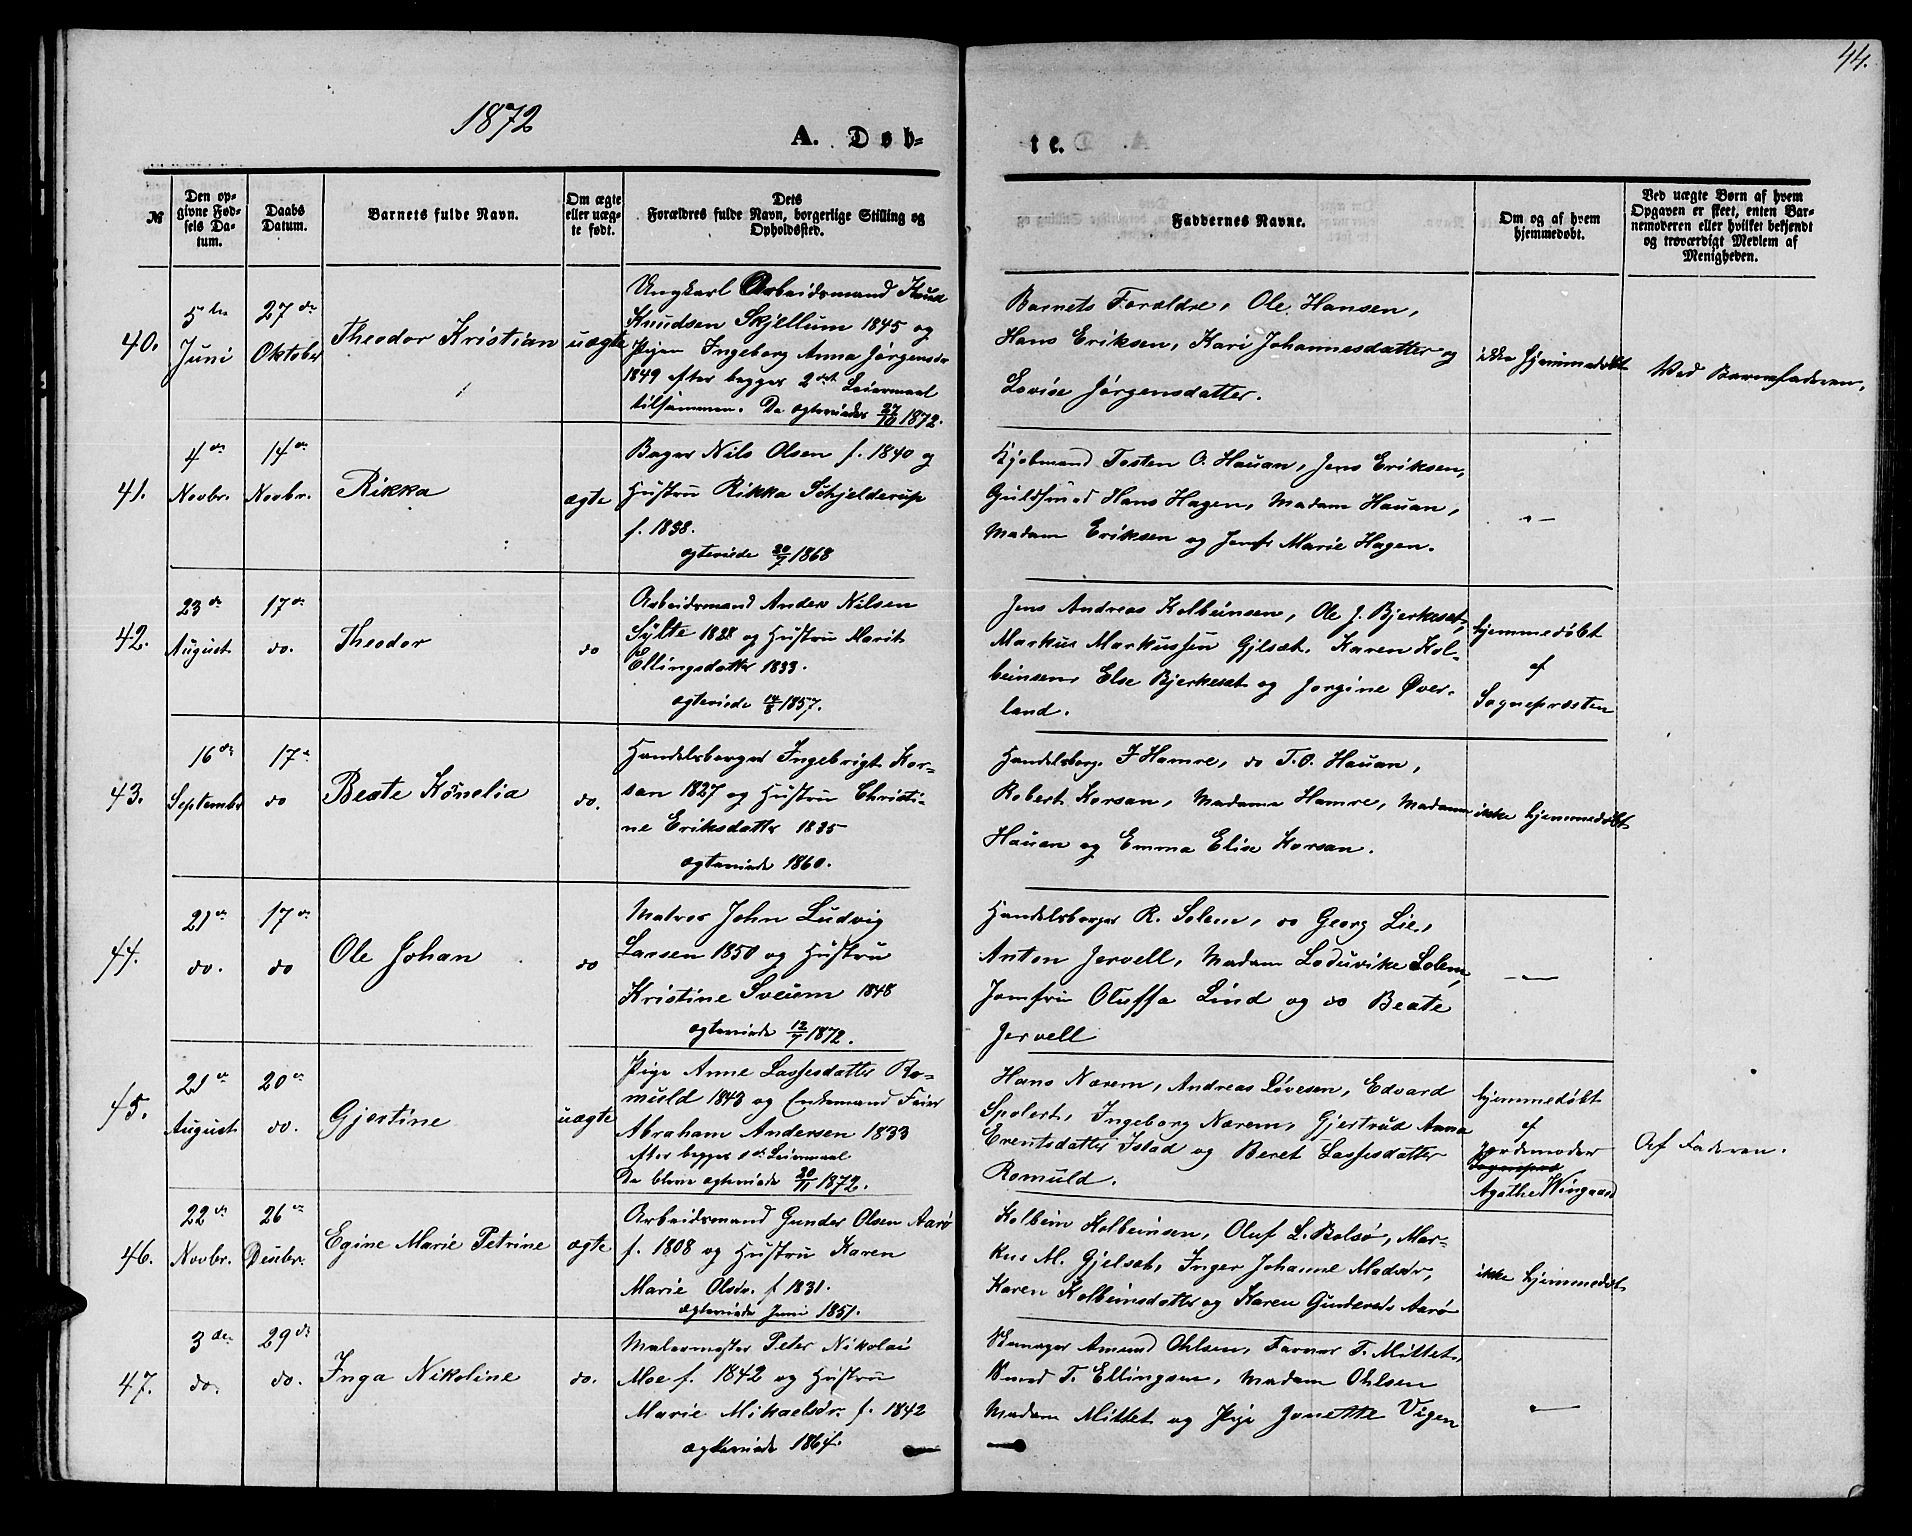 44.
1872
A. Døb-
te.
№
Den op-
givne Fød-
sels Da-
tum.
Daabs
Datum.
Barnets fulde Navn.
Om ægte
eller uæg-
te født.
Dets
Forældres fulde Navn, borgerlige Stilling og
Opholdssted.
Faddernes Navne.
Om og af hvem
hjemmedøbt.
Ved uægte Børn af hvem
Opgaven er skeet, enten Bar-
nemoderen eller hvilket bekjendt
og troværdigt Medlem af
Menigheden.
40.
5te
Juni
27de
Oktober
Theodor Kristian
uægte
Ungkarl Arbeidsmand Knud
Knudsen Skjellum 1845 og
Pigen Ingeborg Anna Jørgensdr
1849 efter begges 2det Leiermaal
tilsammen. De ægteviedes 27/10 1872.
Barnets Forældre, Ole Hansen,
Hans Eriksen, Kari Johannesdatter og
Lovise Jørgensdatter.
ikke hjemmedøbt
Ved Barnefaderen.
41.
4de
Novbr.
14de
Novbr.
Rikka
ægte
Bager Nils Olsen f. 1840 og
Hustru Rikka Schjelderup
f. 1838.
ægteviede 20/7 1868
Kjøbmand Tosten O. Hauan, Jens Eriksen,
Guldsmed Hans Hagen, Madam Hauan,
Madam Eriksen og Jomfr Marie Hagen.
-"-
42.
23de
August
17de
do.
Theodor
do
Arbeidsmand Anders Nilsen
Sylte 1828 og Hustru Marit
Ellingsdatter 1833.
ægteviede 14/8 1857.
Jens Andreas Kolbeinsen, Ole J. Bjerkeset,
Markus Markussen Gjelset, Karen Kol-
beinsen, Else Bjerkeset og Jorgine Øver-
land.
hjemmedøbt
af
Sognepræsten
43.
16de
September
17de
do
Beate Kornelia
do.
Handelsborger Ingebrigt Kor-
san 1827 og Hustru Christi-
ne Eriksdatter 1835
ægteviede 1860.
Handelsborg. J Hamre, do T. O. Hauan,
Robert Korsan, Madame Hamre, Madame
Hauan og Emma Elise Korsan.
ikke hjemmedøbt
44.
21de
do.
17de
do
Ole Johan
do
Matros John Ludvig
Larsen 1850 og Hustru
Kristine Sveum 1848
ægteviede 12/7 1872.
Handelsborger R. Solem, do Georg Lie,
Anton Jervell, Madam Lodovike Solem,
Jomfru Oluffa Lind og do Beate
Jervell
-"-
45.
21de
August
20de
do.
Gjertine
uægte
Pige Anne Lassesdatter Ro-
muld 1843 og Enkemand Feier
Abraham Andersen 1833
efter begges 1ste Leiermaal
De bleve ægteviede 20/11 1872.
Hans Nærem, Andreas Løvesen, Edvard
Spolert, Ingeborg Nærem, Gjertrud Anna
Erentsdatter Istad og Beret Lassesdatter
Romuld.
hjemmedøbt
af
Jordemoder
Agathe Wingaard
Af Faderen.
46.
22de
Novbr.
26de
Decbr.
Egine Marie Petrine
ægte
Arbeidsmand Gunder Olsen Aarø
f. 1808 og Hustru Karen
Marie Olsdr. f 1831.
ægteviede Juni 1851.
Kolbein Kolbeinsen, Oluf L. Bolsø, Mar-
kus M. Gjelset, Inger Johanne Madsdr,
Karen Kolbeinsdatter og Karen Gundersdr Aarø
ikke hjemmedøbt
47.
3die
do.
29de
do.
Inga Nikoline
do.
Malermester Peter Nikolai
Moe f. 1842 og Hustru
Marie Mikaelsdr. f. 1842
ægteviede 1864.
Amund Ohlsen, Farver T. Mittet,
Knud T. Ellingsen, Madam Ohlsen
Madam Mittet og Pige Jonette Vigen
-"-